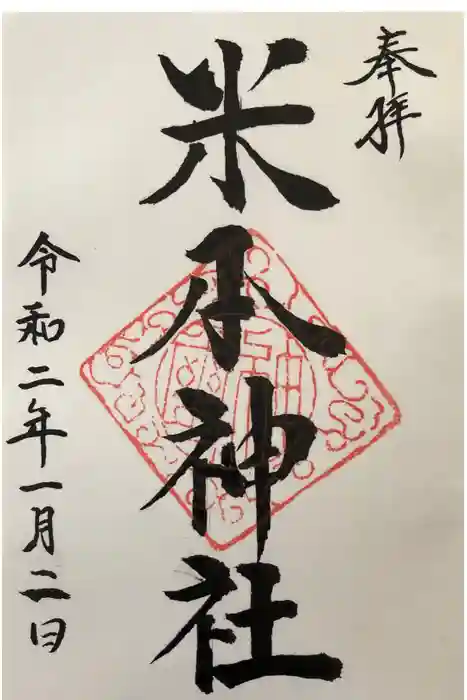 奉拝
米神社
令和二年一月二日